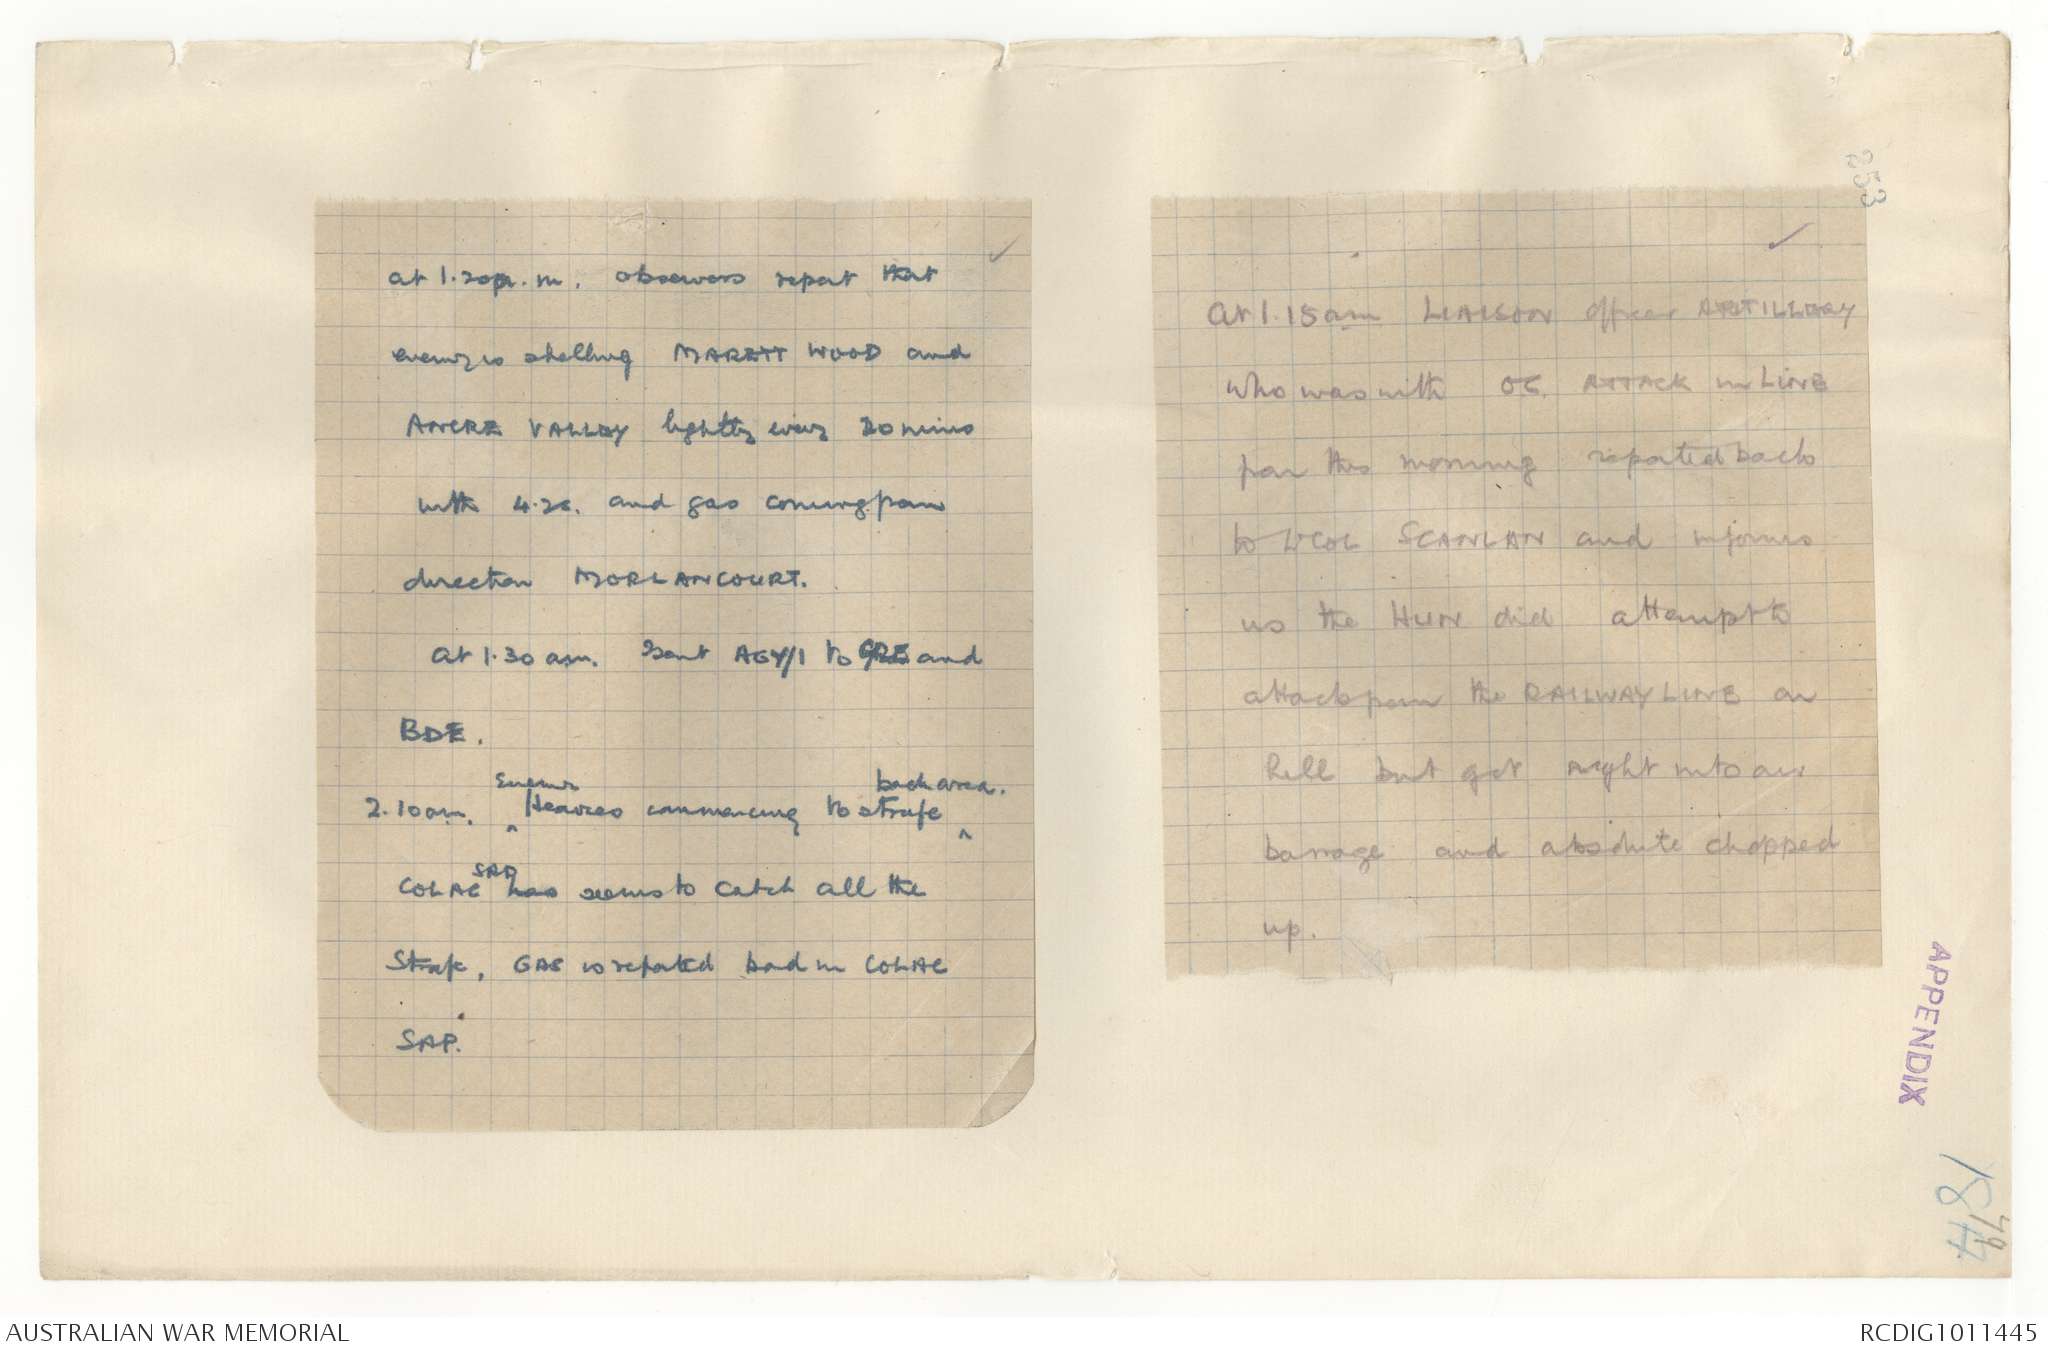 at 1.20 a.m. observers report that
enemy is shelling MARETT WOOD and
ANCRE VALLEY lightly every 20 mins
with 4.2s. and gas coming from
direction MORLANCOURT.
at 1.30 am. Sent AGY/1 to and
BDE.
Enemy back area.
2.10 am. Heavies commencing to strafe
SAP
COLAC has seems to catch all the
Strafe, GAS is reported bad in COLAC
SAP.
253
at 1.15 am LIAISON officer ARTILLERY
who was with OC. ATTACK in LINE
for this morning reported back
to Lt COL SCANLAN and informs
us the HUN did attempt to
attack from the RAILWAY LINE on
hill but got right into our
barrage and absolute chopped
up.
APPENDIX
184
79
AUSTRALIAN WAR MEMORIAL
RCDIG1011445